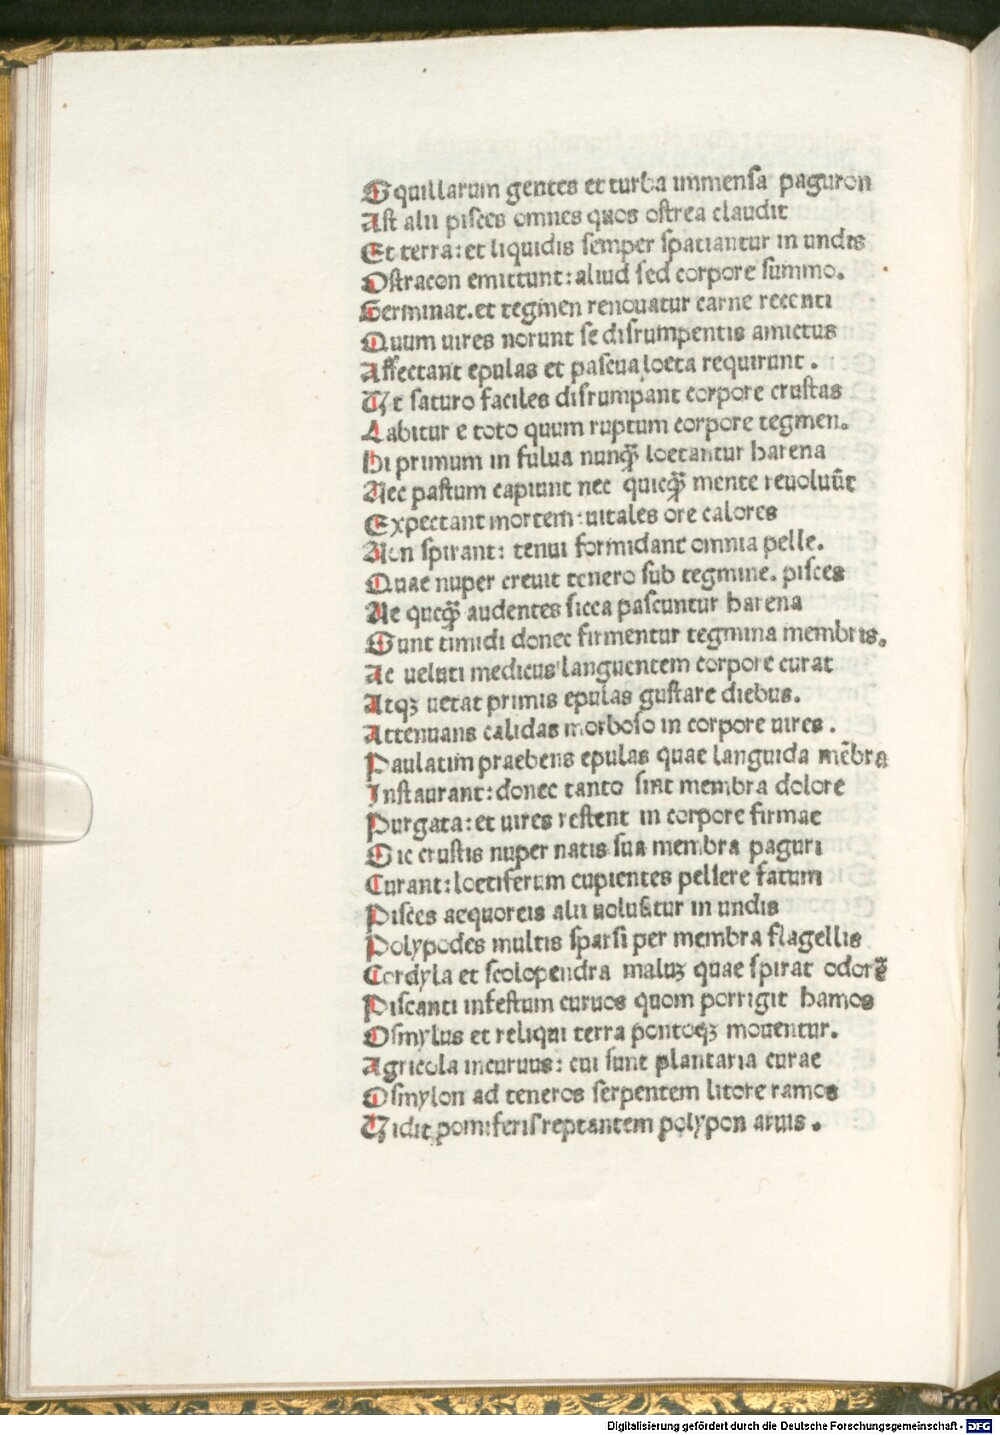 Squillarum gentes et turba immensa paguron
Ast alii pisces omnes quos ostrea claudit
Et terra: et liquidis semper spatiantur in undis
Ostracon emittunt: aliud sed corpore summo.
Germinat. et tegmen renouatur carne recenti
Quum uires norunt se disrumpentis amictus
Affectant epulas et pascua loeta requirunt .
Ut saturo faciles disrumpant corpore crustas
Labitur e toto quum ruptum corpore tegmen.
Hi primum in fulua nunq̃ loetantur harena
Nec pastum capiunt nec quicq̃ mente reuoluũt
Expectant mortem: uitales ore calores
Non spirant: tenui formidant omnia pelle.
Quae nuper creuit tenero sub tegmine. pisces
Ne queq̃ audentes sicca pascuntur harena
Sunt timidi donec firmentur tegmina membris.
Ac ueluti medicus languentem corpore curat
Atqꝫ uetat primis epulas gustare diebus.
Attenuans calidas morboso in corpore uires .
Paulatim praebens epulas quae languida mẽbra
Instaurant: donec tanto sint membra dolore
Purgata: et uires restent in corpore firmae
Sic crustis nuper natis sua membra paguri
Curant: loetiferum cupientes pellere fatum
Pisces aequoreis alii uoluũtur in undis
Polypodes multis sparsi per membra flagellis
Cordyla et scolopendra maluꝫ quae spirat odorẽ
Piscanti infestum curuos quom porrigit hamos
Osmylus et reliqui terra pontoqꝫ mouentur.
Agricola incuruus: cui sunt plantaria curae
Osmylon ad teneros serpentem litore ramos
Uidit pomiferis reptantem polypon aruis .
Digitalisierung gefördert durch die Deutsche Forschungsgemeinschaft - DFG